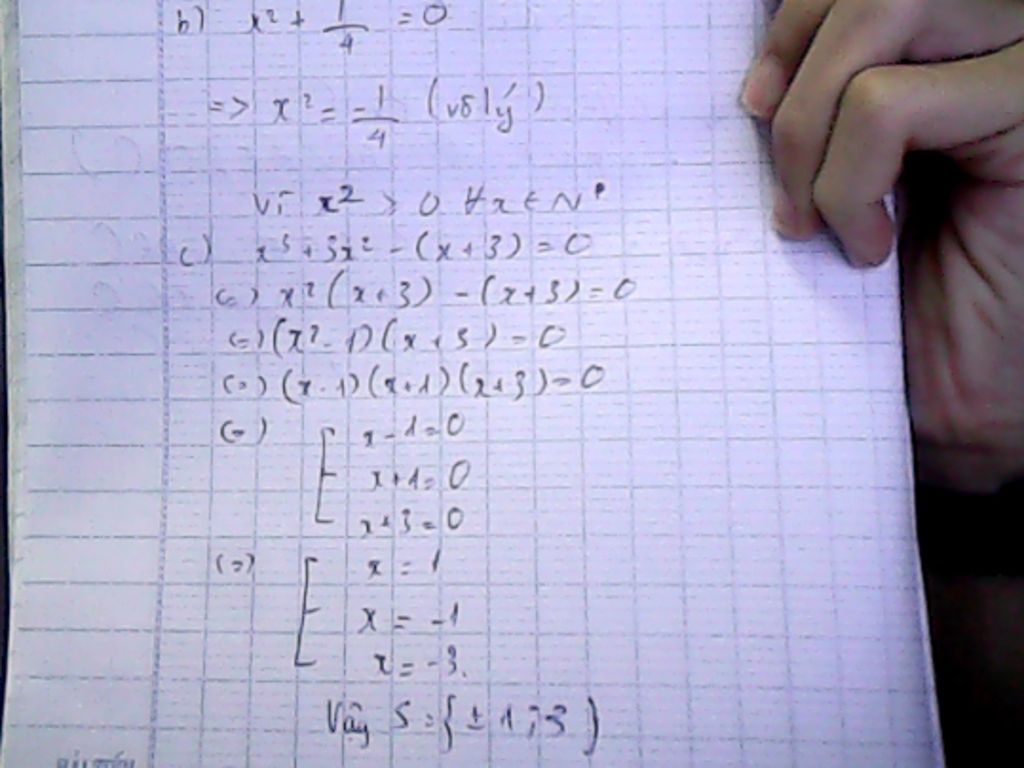 b) x² + 1/4 = 0
=> x² = -1/4 (vô lý)
Vì x² > 0 ∀x ∈ N*
c) x³ + 3x² - (x + 3) = 0
(=) x² (x + 3) - (x + 3) = 0
(=) (x² - 1) (x + 3) = 0
(=) (x - 1) (x + 1) (x + 3) = 0
(=) [ x - 1 = 0
x + 1 = 0
x + 3 = 0
(=) [ x = 1
x = -1
x = -3.
Vậy S = { ± 1 ; -3 }